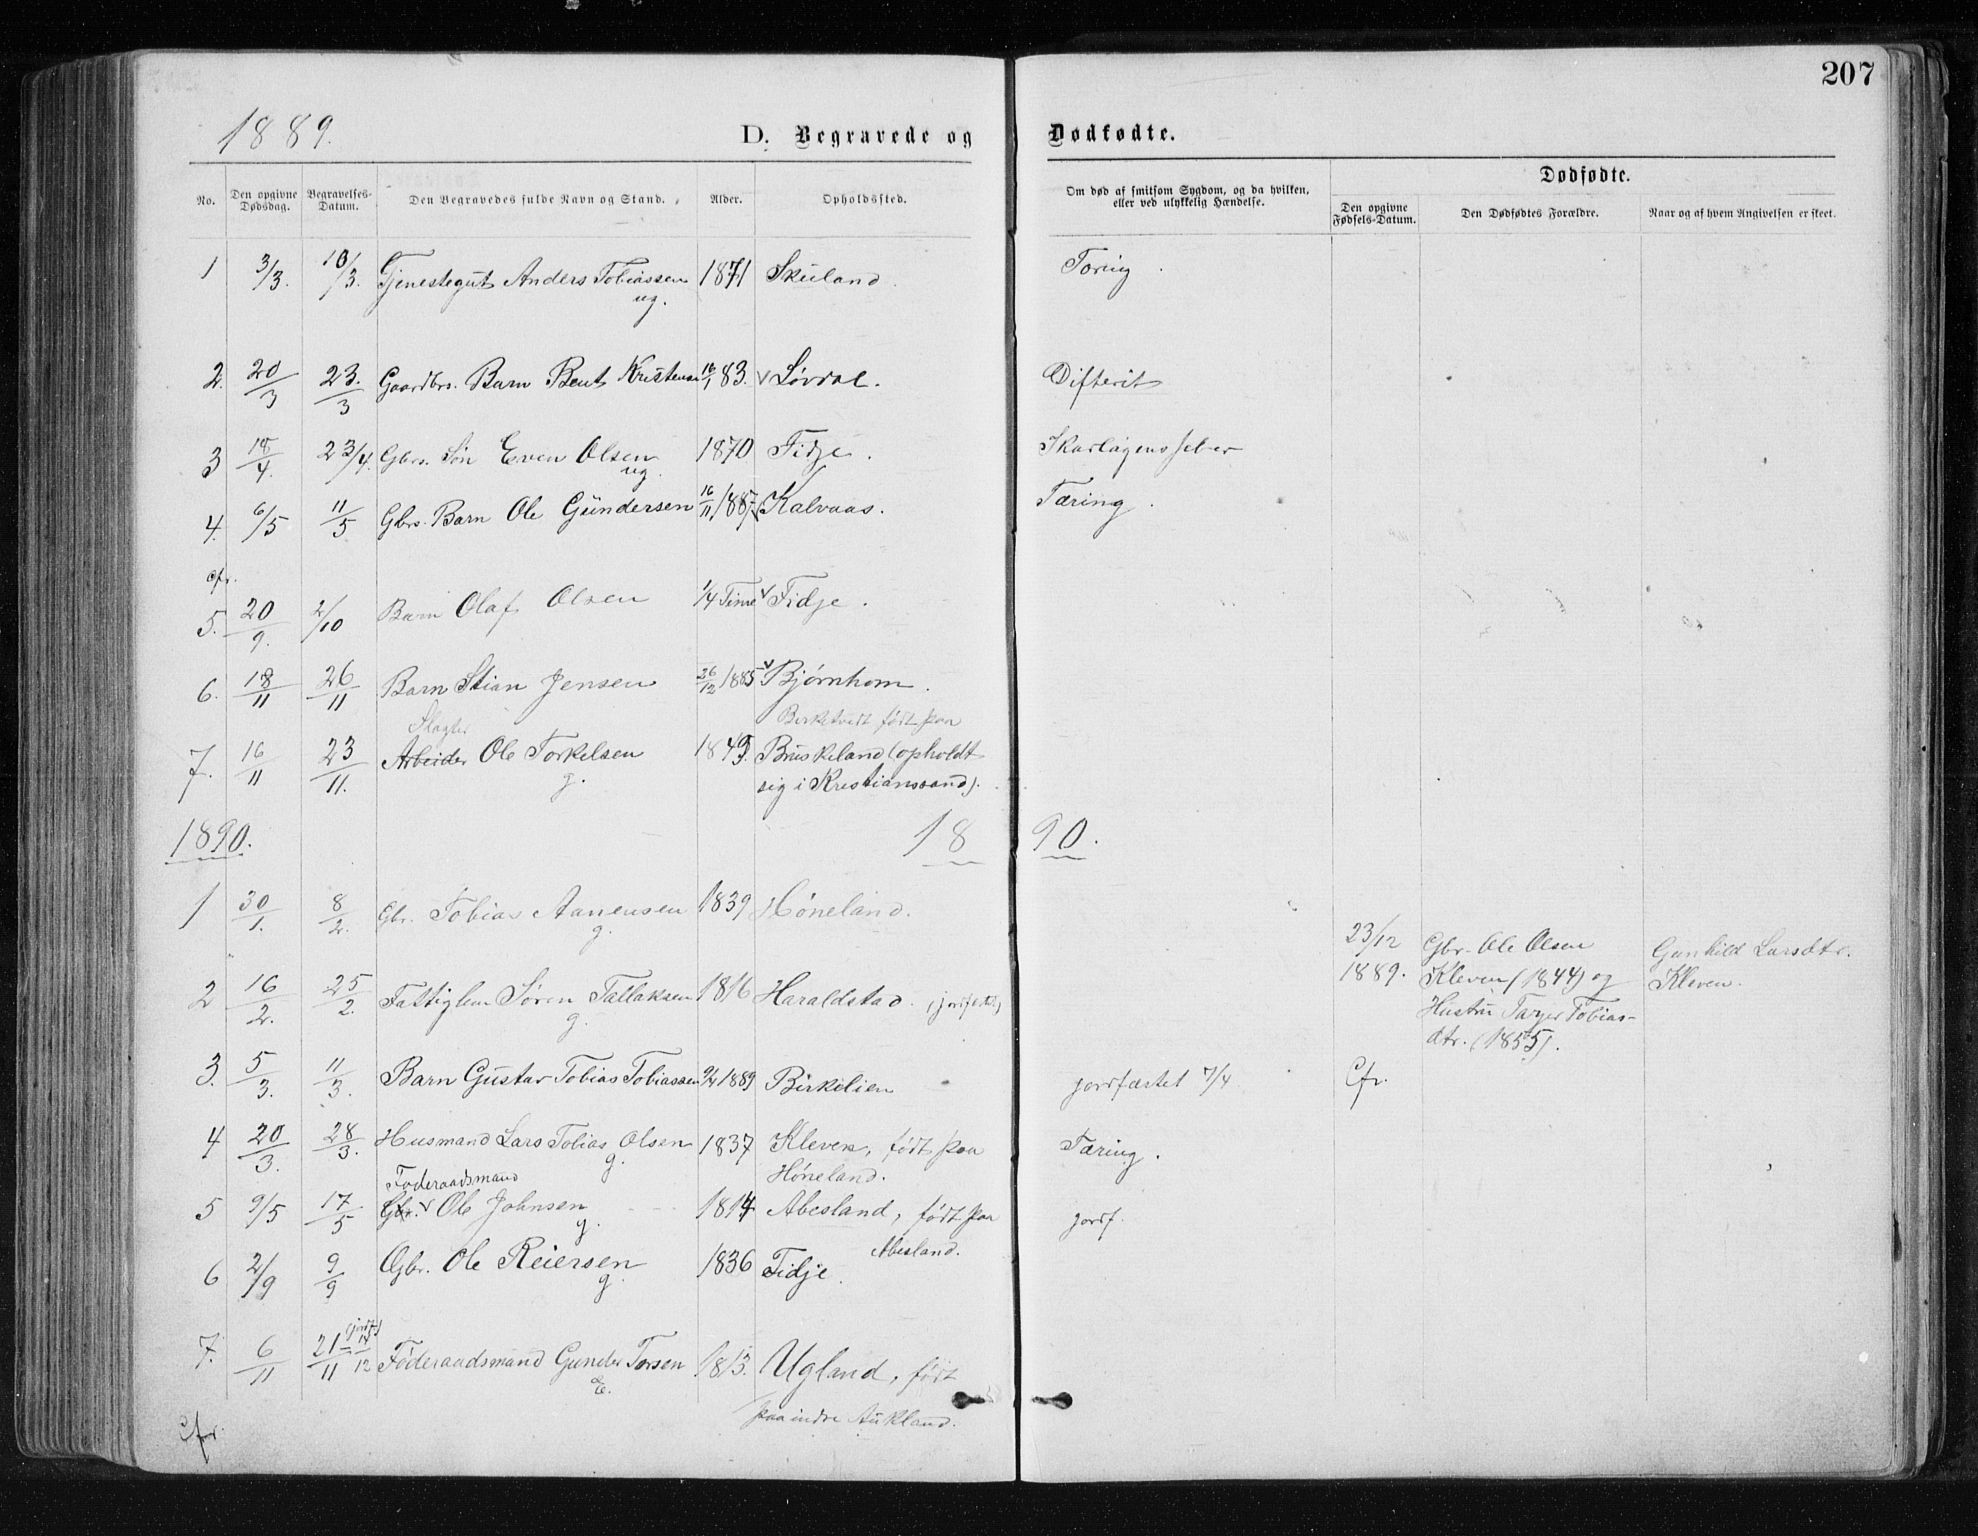 207
1889.
D. Begravede og Dødfødte.
No. Den opgivne Dødsdag. Begravelses-Datum. Den Begravedes fulde Navn og Stand. Alder. Opholdssted. Om død af smitsom Sygdom, og da hvilken, eller ved ulykkelig Hændelse. Dødfødte.
Den opgivne Fødsels-Datum. Den Dødfødtes Forældre. Naar og af hvem Angivelsen er skeet.
1 3/3. 10/3. Tjenestegut Anders Tobiassen 1871 Skuland. Tæring.
ug.
2. 20/3 23./3 Gaardbrs. Barn Bent Kristensen 16/1 83. v Løvdal. Difterit
3 18/4. 23/4. Gbrs. Søn Even Olsen 1870 Fidje. Skarlagensfeber
ug.
4. 6/5 11/5 Gbrs. Barn Ole Gundersen 16/11 1887 Kalvaas. Tæring.
cfr.
5. 20/9. 2/10 Barn Olaf Olsen 1/4 Time v Fidje.
6. 18/11 26/11 Barn Stian Jensen 26/12 1885 v Bjørnhom.
Slagter Birketvedt født paa
7. 16/11 23/11. Arbeider Ole Torkelsen 1849. Bruskeland (opholdt
g. sig i Kristianssand).
1890. 1890.
1 30/1. 8/2. Gbr. Tobias Aanensen 1839 Høneland.
g.
23/12 Gbr. Ole Olsen Gunhild Larsdtr.
1889. Kleven (1844) og Kleven.
2 16/2. 25/2. Fattiglem Søren Tallaksen 1816 Haraldstad. (jordfæstet)
g.
Hustru Tarjer Tobias-
dtr. (1855).
3. 5/3. 11/3. Barn Gustav Tobias Tobiassen 9/4 1889 Birkelien jordfæstet 7/4 Cfr.
4 20/3. 28/3. Husmand Lars Tobias Olsen 1837 Kleven, født paa Tæring.
g. Høneland.
Føderaadsmand
5 9/5 17/5 Gbr. v Ole Johnsen 1814 Abesland, født paa jordf.
g. Abesland.
6 2/9 9/9 Gbr. Ole Reiersen 1836 Fidje.
g.
(jordf.)
7. 6/11 21/11 - 14/12 Føderaadsmand Gunder Torsen 1813. Ugland, født
E. paa indre Aukland.
Cfr.